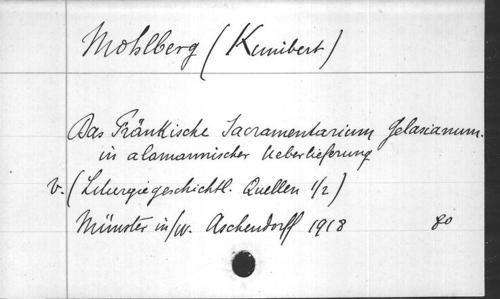 Mohlberg (Kunibert)
Das Fränkische Sacramentarium Gelasianum.
in alamannischer Ueberlieferung
v. (Liturgiegeschichtl. Quellen 1/2)
Münster in/W. Aschendorff 1918 80